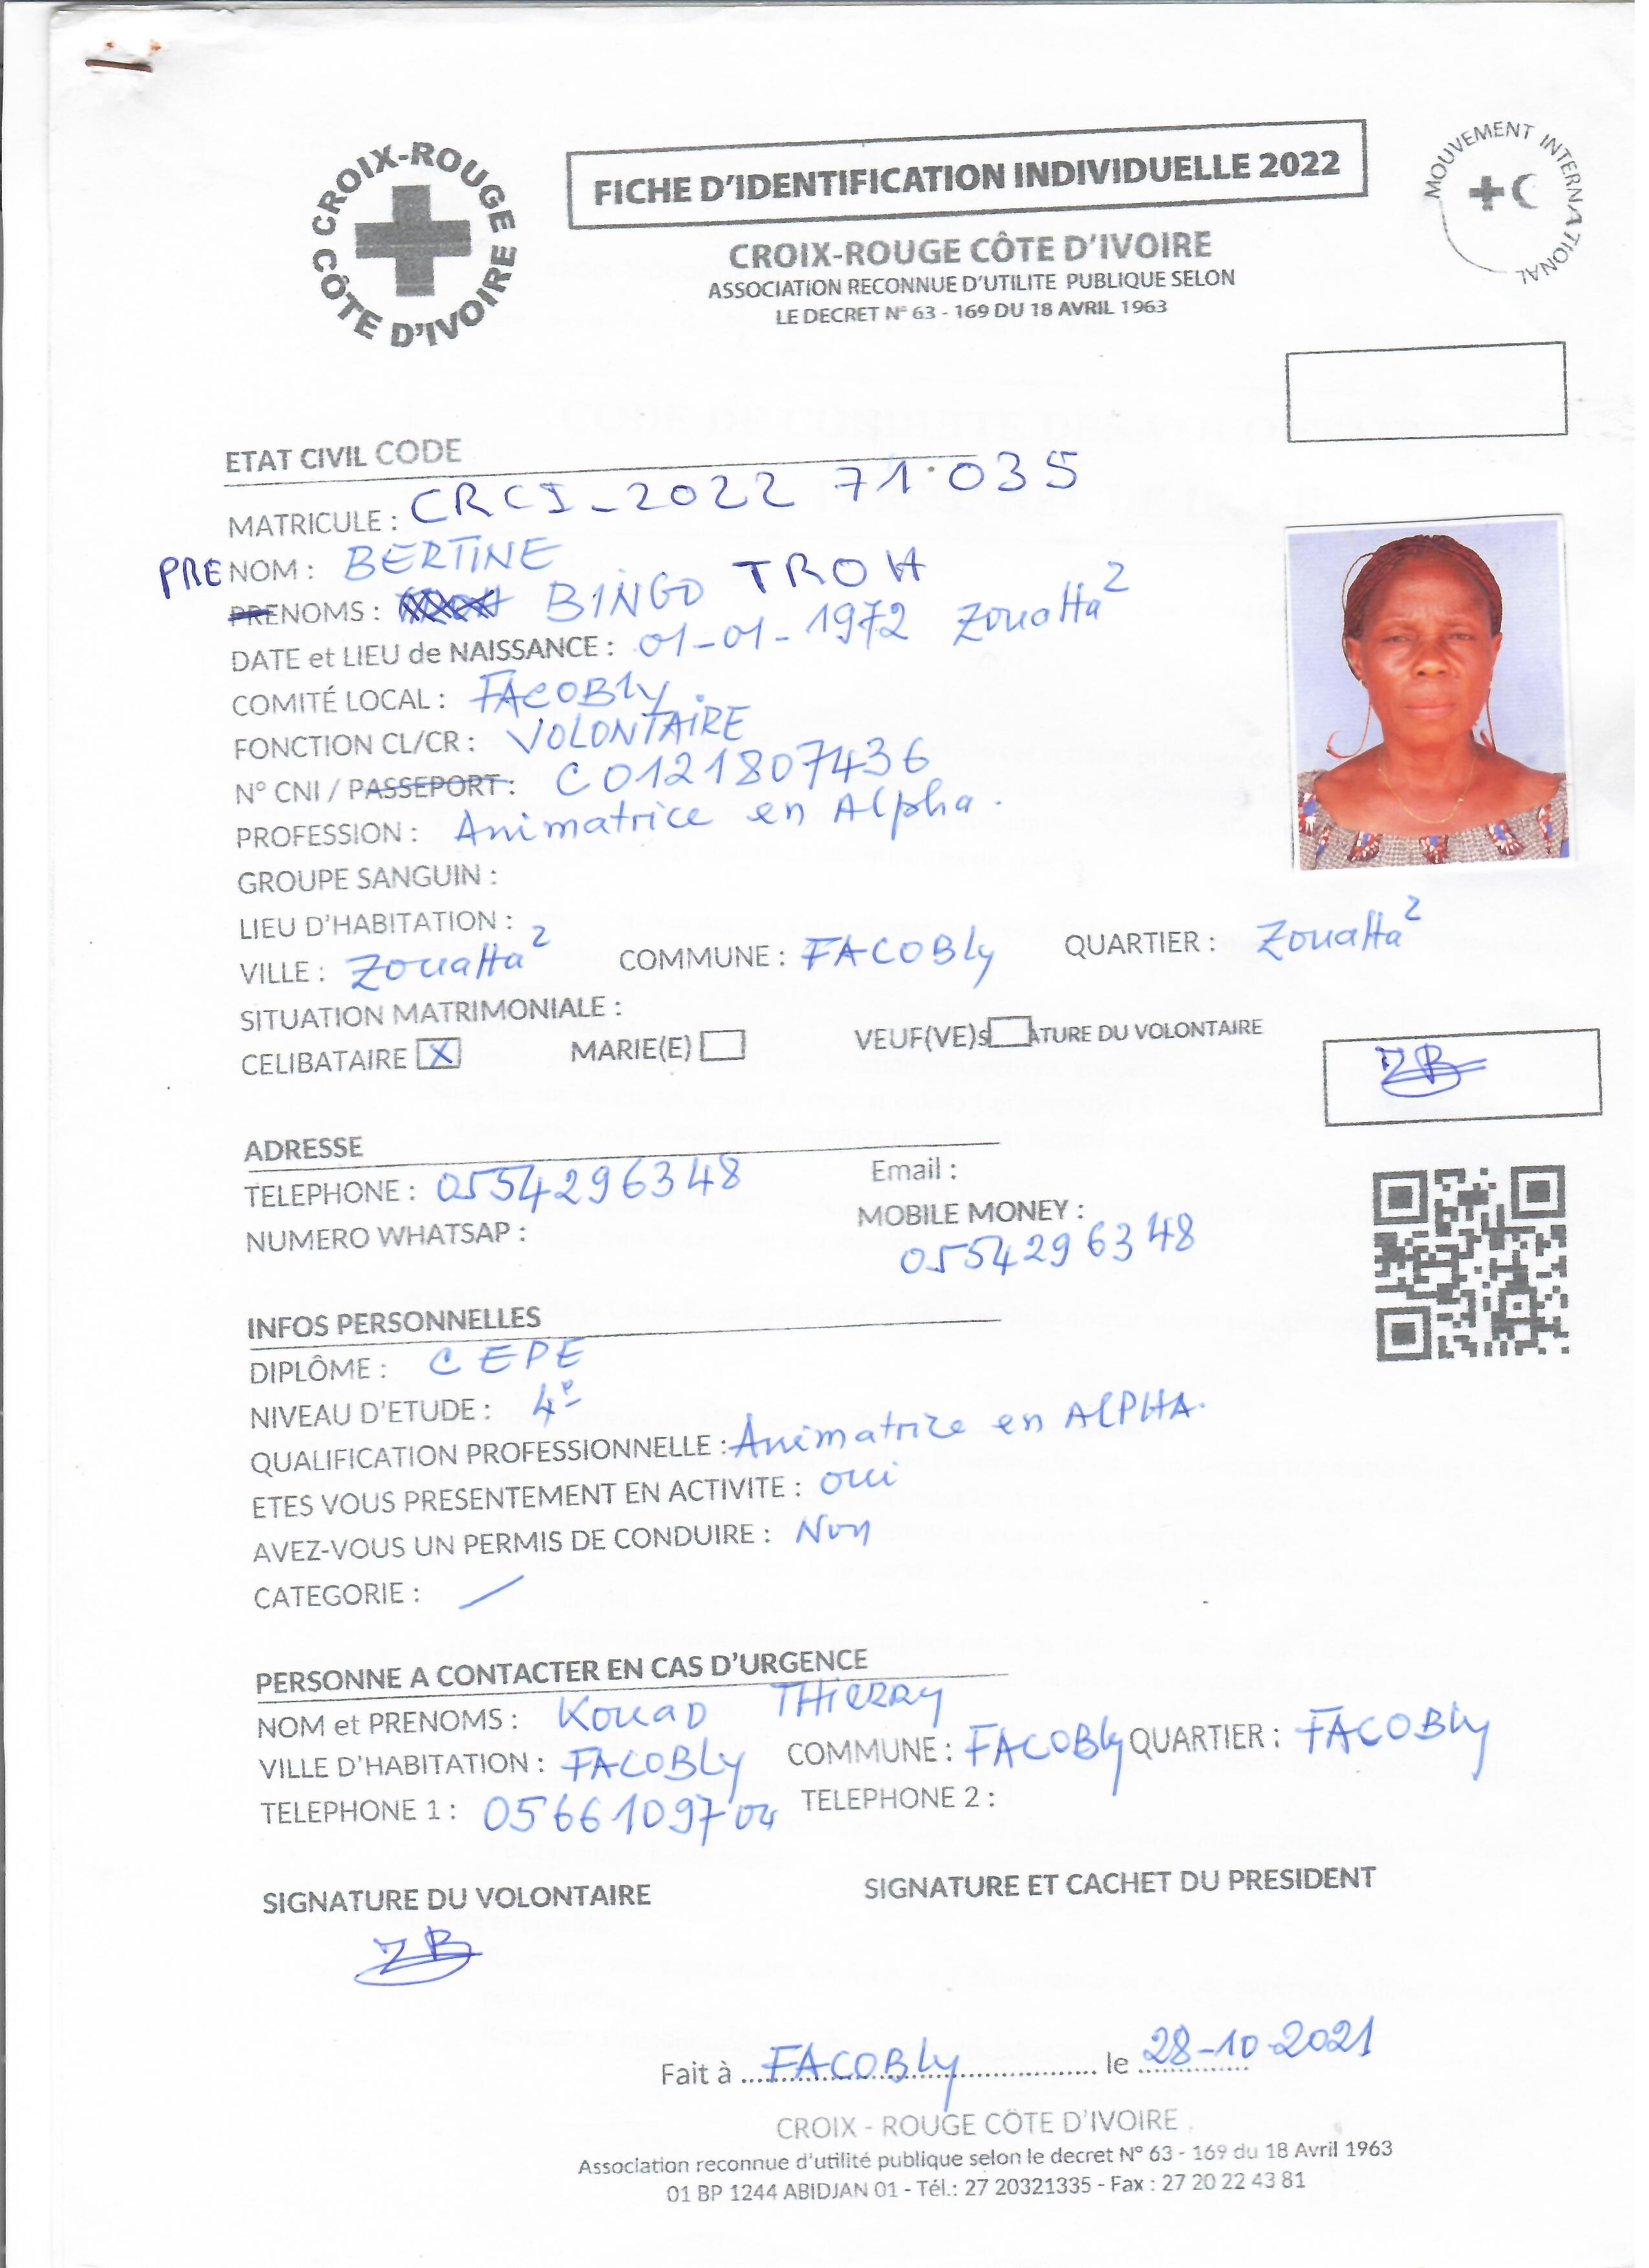 CROIX-ROUGE
CÔTE D'IVOIRE
FICHE D'IDENTIFICATION INDIVIDUELLE 2022
MOUVEMENT INTERNATIONAL
CROIX-ROUGE CÔTE D'IVOIRE
ASSOCIATION RECONNUE D'UTILITE PUBLIQUE SELON
LE DECRET N° 63 - 169 DU 18 AVRIL 1963
ETAT CIVIL CODE
MATRICULE : CRCI_2022 71.035
PRENOM : BERTINE
PRENOMS : BINGO TROH
DATE et LIEU de NAISSANCE : 01-01-1972 Zouatta 2
COMITÉ LOCAL : FACOBly
FONCTION CL/CR : VOLONTAIRE
N° CNI / PASSEPORT : C0121807436
PROFESSION : Animatrice en Alpha.
GROUPE SANGUIN :
LIEU D'HABITATION :
VILLE : Zouatta 2 COMMUNE : FACOBly QUARTIER : Zouatta 2
SITUATION MATRIMONIALE :
CELIBATAIRE X MARIE(E) VEUF(VE)s ATURE DU VOLONTAIRE
ZB
ADRESSE
TELEPHONE : 0554296348 Email :
NUMERO WHATSAP : MOBILE MONEY :
0554296348
INFOS PERSONNELLES
DIPLÔME : CEPE
NIVEAU D'ETUDE : 4e
QUALIFICATION PROFESSIONNELLE : Animatrice en ALPHA.
ETES VOUS PRESENTEMENT EN ACTIVITE : oui
AVEZ-VOUS UN PERMIS DE CONDUIRE : Non
CATEGORIE : /
PERSONNE A CONTACTER EN CAS D'URGENCE
NOM et PRENOMS : KOUAO THIERRY
VILLE D'HABITATION : FACOBLy COMMUNE : FACOBly QUARTIER : FACOBly
TELEPHONE 1 : 0566109704 TELEPHONE 2 :
SIGNATURE DU VOLONTAIRE SIGNATURE ET CACHET DU PRESIDENT
ZB
Fait à FACOBly le 28-10-2021
CROIX - ROUGE CÔTE D'IVOIRE
Association reconnue d'utilité publique selon le decret N° 63 - 169 du 18 Avril 1963
01 BP 1244 ABIDJAN 01 - Tél.: 27 20321335 - Fax : 27 20 22 43 81